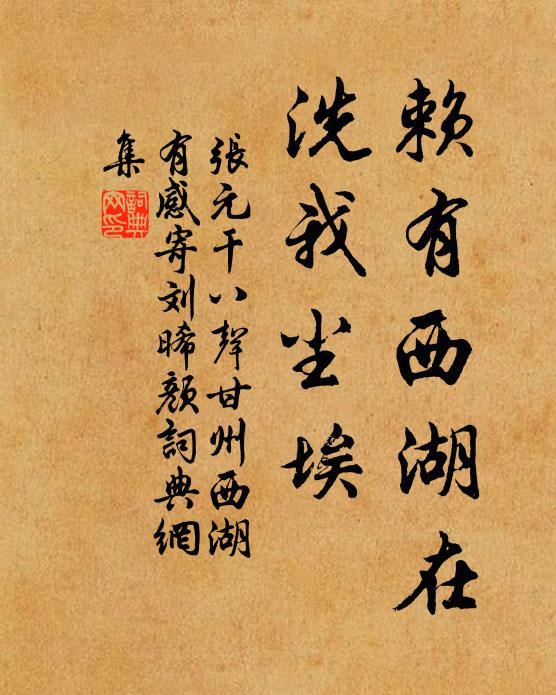 赖有西湖在
洗我尘埃
張元干八聲甘州西湖
有感寄刘晞颜詞典網
集
詞典
网印